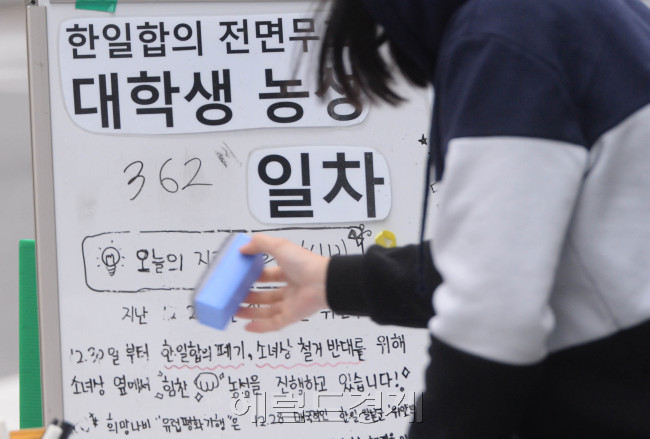 한일합의 전면무
대학생 농성
362 일차
오늘의
지난
12.30일 부터 한일합의 폐기, 소녀상 철거 반대를 위해
소녀상 옆에서 힘찬 농성을 진행하고 있습니다!
* 희망나비 "유럽평화기행"은 12.28 한일
헤럴드경제